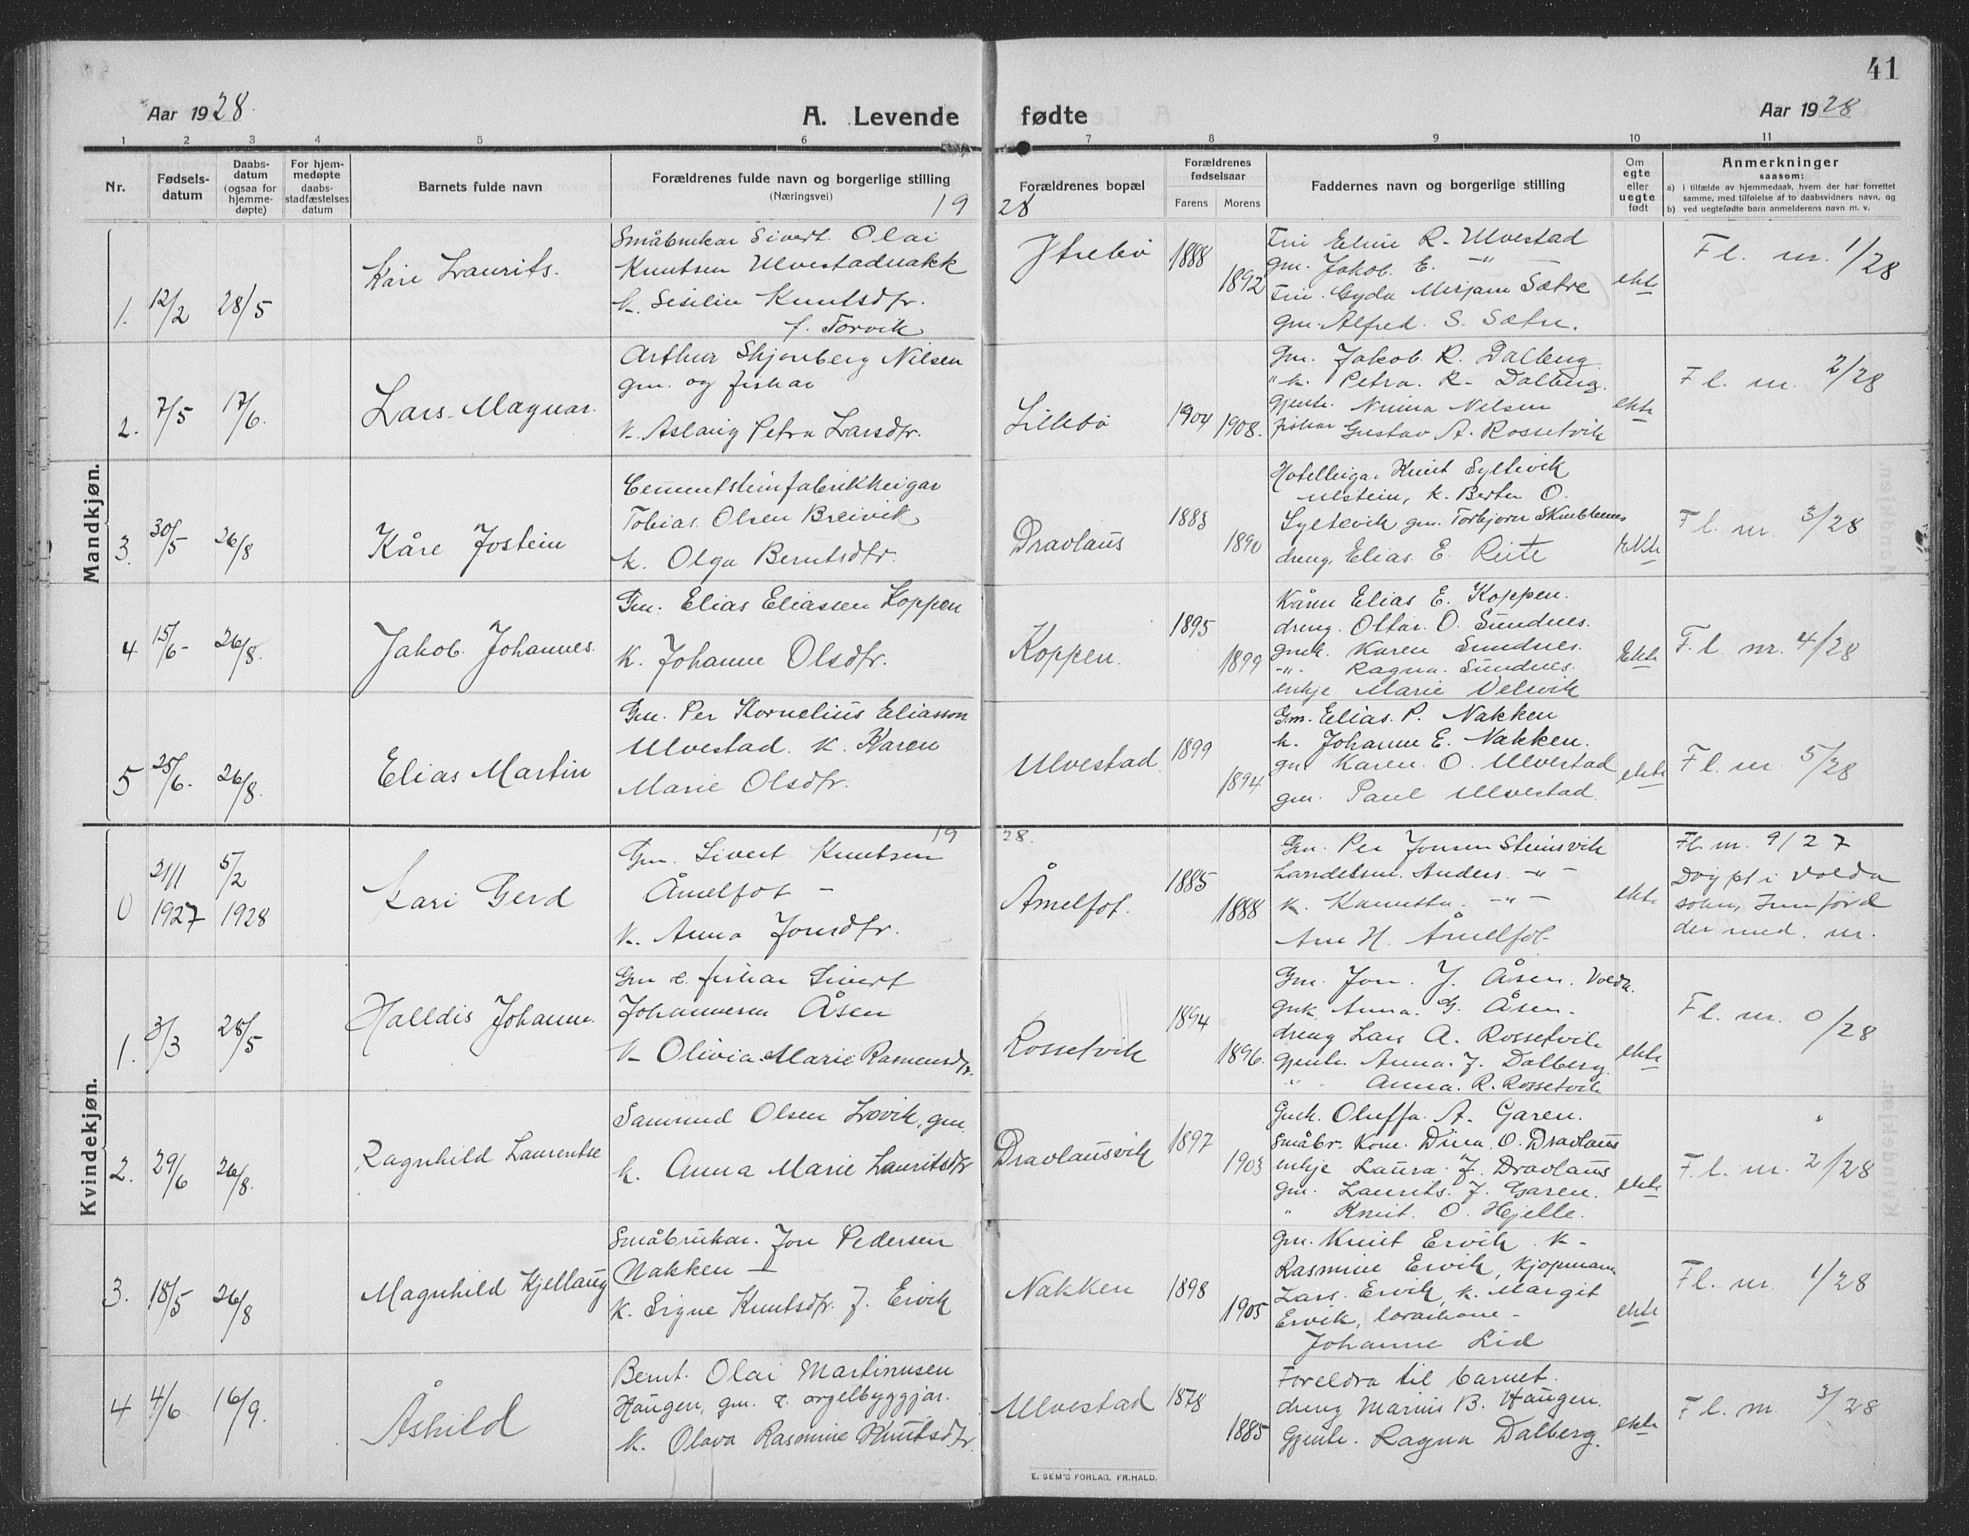 41
Aar 1928.
A. Levende fødte
Aar 1928
1 2 3 4 5 6 7 8 9 10 11
Nr.
Fødsels-
datum
Daabs-
datum
(ogsaa for
hjemme-
døpte)
For hjem-
medøpte
daabs-
stadfæstelses
datum
Barnets fulde navn
Forældrenes fulde navn og borgerlige stilling
(Næringsvei)
19 28
Forældrenes bopæl
Forældrenes
fødselsaar
Farens Morens
Faddernes navn og borgerlige stilling
Om
egte
eller
uegte
født
Anmerkninger
saasom:
a) i tilfælde av hjemmedaab, hvem der har forrettet
samme, med tilføielse af to daabsvidners navn, og
b) ved uegtefødte barn anmelderens navn m. v.
Mandkjøn.
1. 12/2 28/5
Kåre Laurits.
Småbrukar Sivert Olai
Knutsen Ulvestadnakk
k. Sisilie Knutsdtr.
f. Torvik
Ytrebø
1888
1892
Fru Eline R. Ulvestad
gm. Jakob E. -"-
Fru. Gyda Mirjam Sætre
gm. Alfred S. Sætre.
ekte
Fl. nr. 1/28
2. 7/5 17/6.
Lars Magnar.
Arthur Skjonberg Nilsen
gm. og fiskar
k. Aslaug Petra Larsdtr.
Lillebø
1904
1908.
Gm. Jakob R. Dalberg
"k. Petra R. Dalberg.
gjente. Ninna Nilsen
fiskar Gustav A. Rossetvik
ekte
Fl. nr. 2/28
3. 30/5 26/8
Kåre Jostein
Cementsteinfabrikkeigar
Tobias Olsen Breivik
k. Olga Berntsdtr.
Dravlaus
1883
1890
Hotelleigar Knut Syltevik
Ulstein, k. Berte O.
Syltevik gm. Torbjørn Skinblenes
dreng. Elias E. Reite
Ekte
Fl. nr. 3/28
4 15/6- 26/8.
Jakob Johannes.
Gm. Elias Eliassen Koppen
k. Johanne Olsdtr.
Koppen.
1895
1899
Kårm Elias E. Koppen.
dreng. Ottar O. Sundnes.
gmk. Karen Sundnes.
-"- Ragna Sundnes.
enkje Marie Velsvik
Ekte
F.l. nr. 4/28
5 25/6. 26/8.
Elias Martin
Gm. Per Kornelius Eliasson
Ulvestad. k. Karen
Marie Olsdtr.
Ulvestad.
1899
1894
Gm. Elias P. Nakken
k. Johanne E. Nakken.
gm. Karen O. Ulvestad
gm. Paul Ulvestad.
ekte
Fl. nr. 5/28
Kvindekjøn.
19 28.
0 21/11 5/2
1927 1928
Kari Gerd
Gm. Sivert Knutsen
Åmelfot -
k. Anna Jonsdtr.
Åmelfot.
1885
1888
Gm. Per Jonsen Steinsvik
Landktsm. Anders -"-
k. -"-
Ane H. Åmelfot
ekte
Fl. nr. 9/27
Døypt i Volda
sokn, Innførd
der med. nr.
1. 3/3 28/5
Halldis Johanne.
Gm & fiskar Sivert
Johannesen Åsen
k. Olivia Marie Rasmusdtr.
Rossetvik
1894
1896.
Gm. Jon J. Åsen. Volda.
Gmk. Anna G. Åsen.
dreng Lars A. Rossetvik
Gjente. Anna J. Dalberg.
" - Anna R. Rossetvik
ekte
Fl. nr. 0/28
2. 29/6 26/8.
Ragnhild Laurentse
Samund Olsen Løvik, gm.
k. Anna Marie Lauritsdtr
Dravlausvik
1897
1903
Gmk. Oluffa A. Garen.
Småbr. Kone. Dina O. Dravlaus
enkje Laura J. Dravlaus
gm. Laurits J. Garen.
" Knut O. Hjelle.
ekte
F.l. nr. 2/28
3. 18/5 26/8
Magnhild Kjellaug
Småbrukar. Jon Pedersen
Nakken -
k. Signe Knutsdtr. f. Ervik
Nakken
1898
1905
Gm. Knut Ervik k-
Rasmine Ervik, kjøpmann
Lars Ervik, k. Margit
Ervik, lærarkone -
Johanne Lid
ekte
Fl. nr. 1/28
4 4/6 16/9.
Åshild
Bernt Olai Martinusen
Haugen, gm. & orgelbyggjar.
k. Olava Rasmine Knutsdtr.
Ulvestad
1878
1885
Foreldra til barnet.
dreng Marius B. Haugen.
Gjente. Ragna Dalberg.
ekte
Fl. nr 3/28
E. SEM'S FORLAG, FR.HALD.